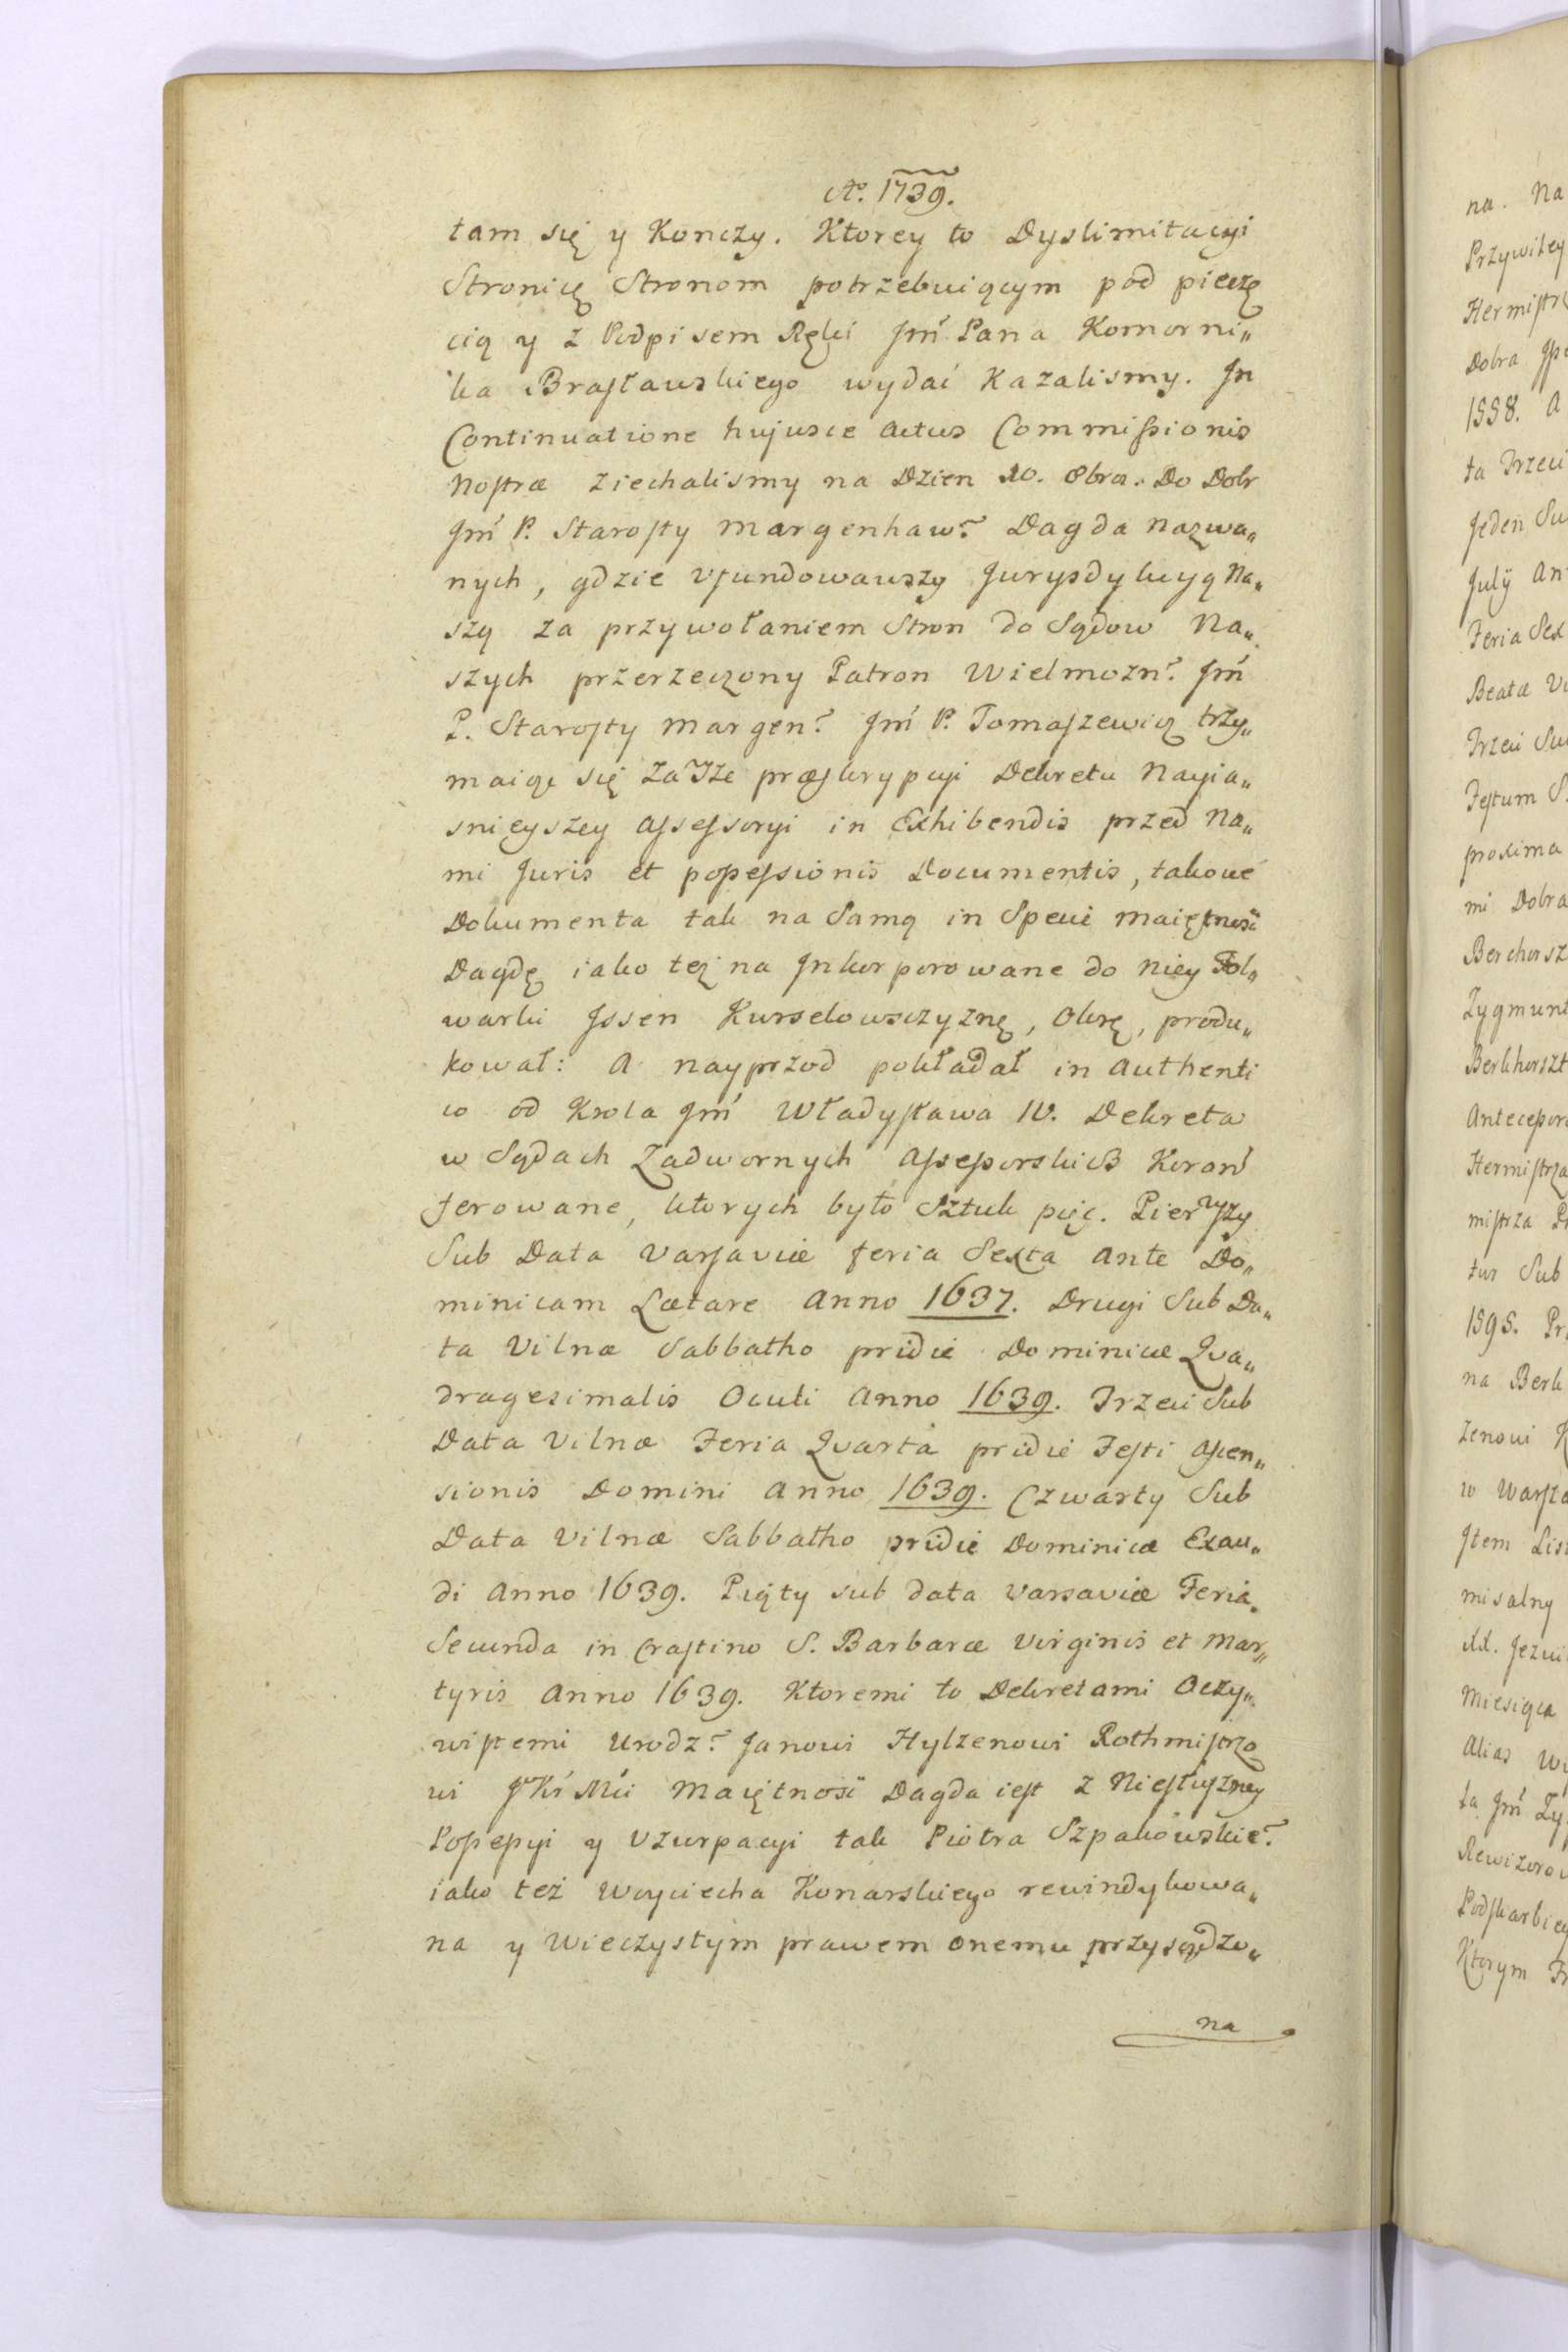 Aº. 1739.
tam się y Konczy. Ktorey to Dyslimitacyi
Stronicę Stronom potrzebuiącym pod pieczę
cią y z Podpisem Ręki Jmć Pana Komorni„
ka Brasławskiego wydać Kazalismy. In
Continuatione hujusce actus Commissionis
nostræ ziechalismy na Dzien 10. 8bra. Do Dobr
Jmć P. Starosty Margenhaw? Dagda nazwa„
nych, gdzie vfundowawszy Jurysdykcyą Na„
szą za przywołaniem Stron do Sądow Na„
szych przerzeczony Patron Wielmozn? Jmć
P. Starosty Margen? Jmć P. Tomaszewicz trzy„
maiąc się zaJże præskrypcyi Dekretu Nayia„
snieyszey Assessoryi in Exhibendis przed Na„
mi Juris et possessionis Documentis, takowe
Dokumenta tak na Samą in Specie maiętność
Dagdę iako też na Inkorporowane do niey Fol„
warki Jssen Kurselowszczyznę, Okrę, produ„
kował: A nayprzod pokładał in Authenti
co od Krola Jmć Władysława IV. Dekreta
w Sądach Zadwornych Assessorskich Koron
ferowane, ktorych było Sztuk pięć. Pierwszy
Sub Data Varsaviæ feria Sexta ante Do„
minicam Lætare Anno 1637. Drugi Sub Da„
ta Vilnæ Sabbatho pridie Dominicæ Qva„
dragesimalis Oculi Anno 1639. Trzeci Sub
Data Vilnæ Feria Qvarta pridie Festi Ascen„
sionis Domini Anno 1639. Czwarty Sub
Data Vilnæ Sabbatho pridie Dominicæ Exau„
di Anno 1639. Piąty sub data Varsaviæ Feria
Secunda in Crastino S. Barbaræ Virginis et Mar„
tyris Anno 1639. Ktoremi to Dekretami Oczy„
wistemi Urodz? Janowi Hylzenowi Rothmistrzo
wi JKr Mći Maiętność Dagda iest z Niesłuszney
Possessyi y Vzurpacyi tak Piotra Szpakowskie?
iako też Woyciecha Konarskiego rewindykowa„
na y Wieczystym prawem onemu przysądzo„
na
na. Na
Przywiley
Hermistrz
Dobra
1558. A
ta Trzeci
Jeden Su
July An
Feria Sex
Beatæ Vi
Trzeci Su
Festum S.
proxima
mi Dobra
Berchorsz
Zygmunt
Berkhorszt
Antecessor
Hermistrza
mistrza P
tus Sub
1595. Pr
na Berk
zenowi K
w Warsza
Item Lis
misalny
XX. Jezui
Miesiąca
Alias Wi
ta Jmć Zy
Rewizorow
Podskarbieg
Ktorym Fr